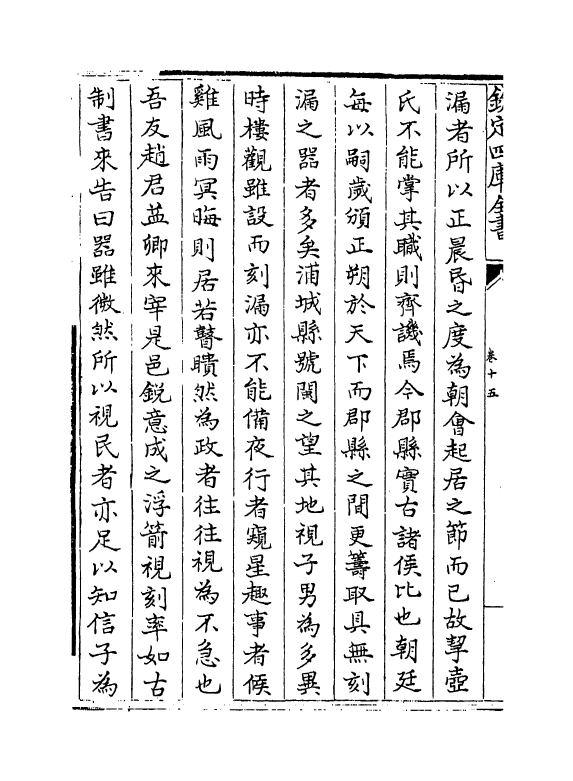 欽定四庫全書
卷十五
漏者所以正晨昬之度為朝會起居之節而已故挈壺
氏不能掌其職則齊譏焉今郡縣實古諸侯比也朝廷
每以嗣歲頒正朔於天下而郡縣之間更籌取具無刻
漏之器者多矣浦城縣號閩之望其地視子男為多異
時樓觀雖設而刻漏亦不能備夜行者窺星趣事者候
雞風雨冥晦則居若瞽聵然為政者往往視為不急也
吾友趙君益卿來宰是邑鋭意成之浮箭視刻率如古
制書來告曰器雖微然所以視民者亦足以知信子為